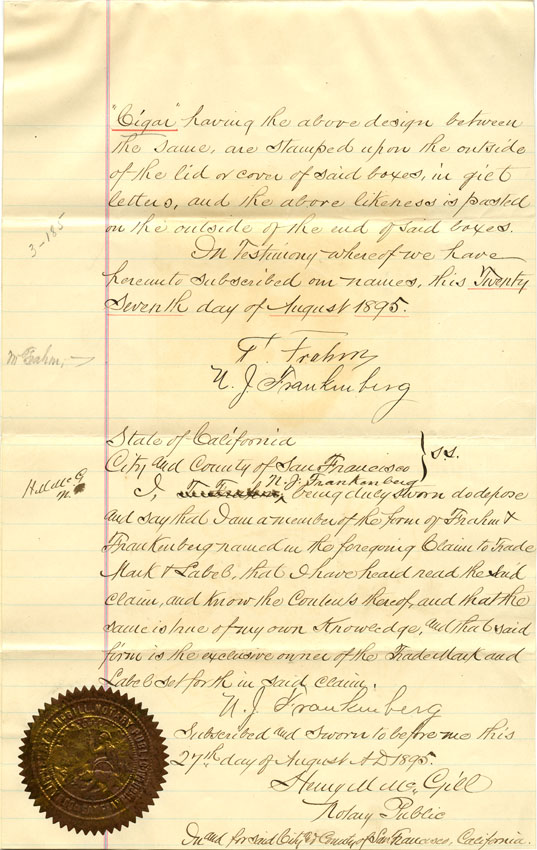 "Cigar" having the above design between
the same, are stamped upon the outside
of the lid or cover of said boxes, in giet
letters, and the above likeness is pasted
on the outside of the end of said boxes.
In Testimony whereof we have
hereunto subscribed our names, this Twenty
Seventh day of August 1895.
3-185
T. Frahm
N. J. Frankenberg
State of California
City and County of San Francisco } s.s.
N. J. Frankenberg
I, being duly sworn do depose
and say that I am a member of the firm of Frahm &
Frankenberg named in the foregoing Claim to Trade
Mark & Label, that I have heard read the said
claim, and know the contents thereof, and that the
same is true of my own knowledge, and that said
firm is the exclusive owner of the Trade Mark and
Label set forth in said claim.
N. J. Frankenberg
Subscribed and sworn to before me this
27th day of August A.D. 1895.
Henry M. McGill
Notary Public
In and for said City & County of San Francisco, California.
H. M. McG